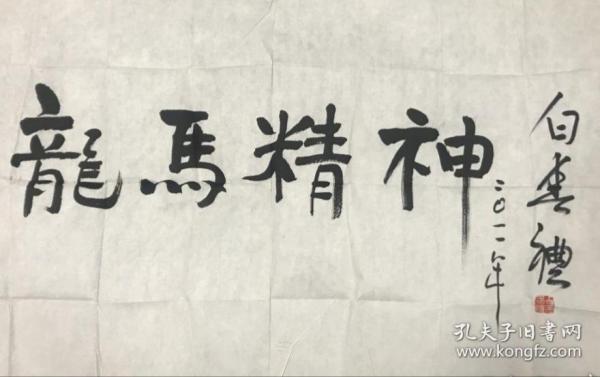 龍馬精神
二〇一一年
白春禮
孔夫子旧書网
www.kongfz.com